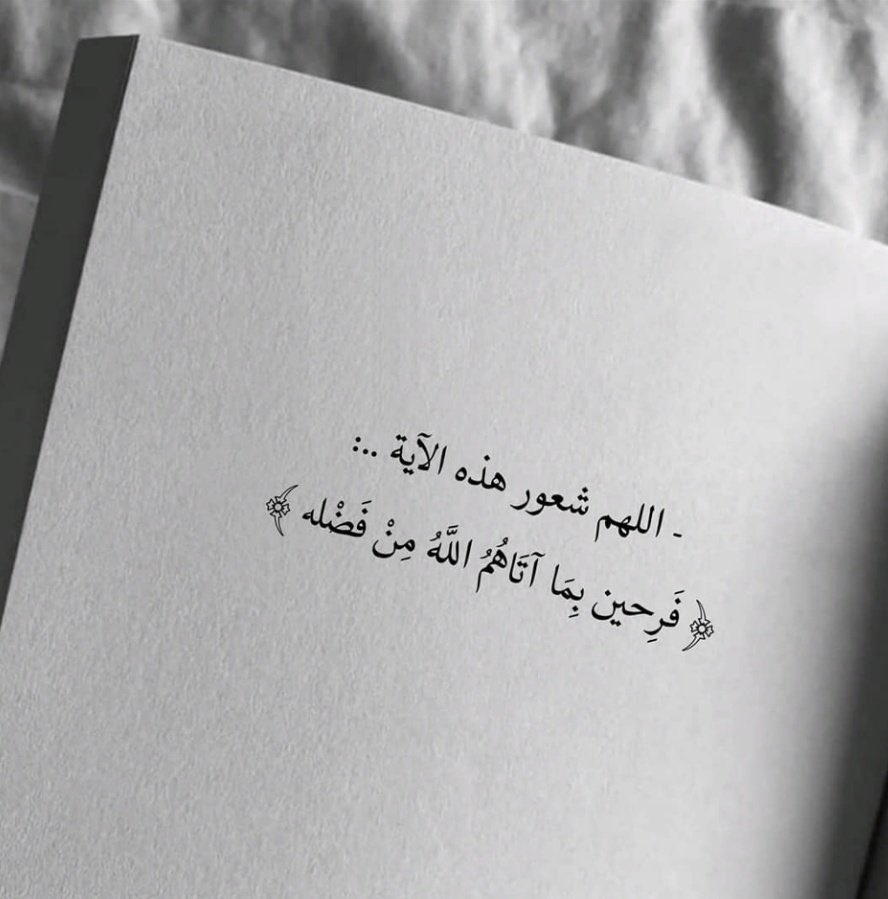 - اللهم شعور هذه الآية ..:
﴿فَرِحين بِمَا آتَاهُمُ اللَّهُ مِنْ فَضْله ﴾